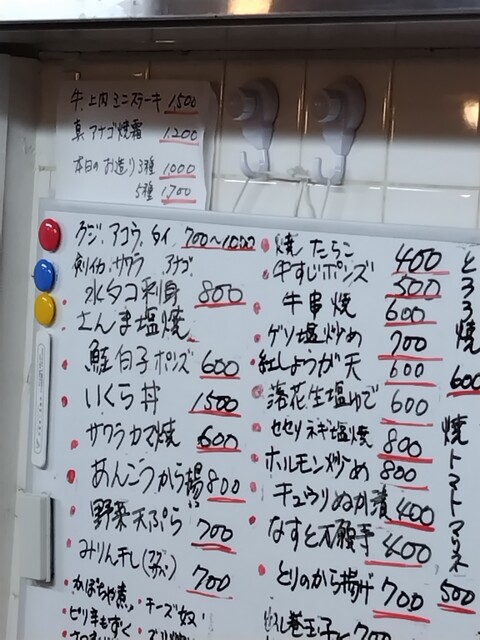 牛.上肉ミニステーキ 1500
真アナゴ焼霜 1,200
本日のお造り3種 1,000
5種 1,700
グジ、アコウ、タイ 700〜1000
剣イカ、サワラ アナゴ
水タコ刺身 800
さんま塩焼
鮭白子ポンズ 600
いくら丼 1500
サワラカマ焼 600
あんこうから揚 800
野菜天ぷら 700
みりん干し 700
かぼちゃ煮、チーズ奴
ピリ辛もずく
焼たらこ 400
牛すじポンズ 500
牛串焼 600
ゲソ塩炒め 700
紅しょうが天 600
落花生塩ゆで 600
セセリネギ塩焼 800
ホルモン炒め 800
キュウリぬか漬 400
なすと万願寺 400
とりのから揚げ 700
とろろ焼 600
焼トマトマリネ 500